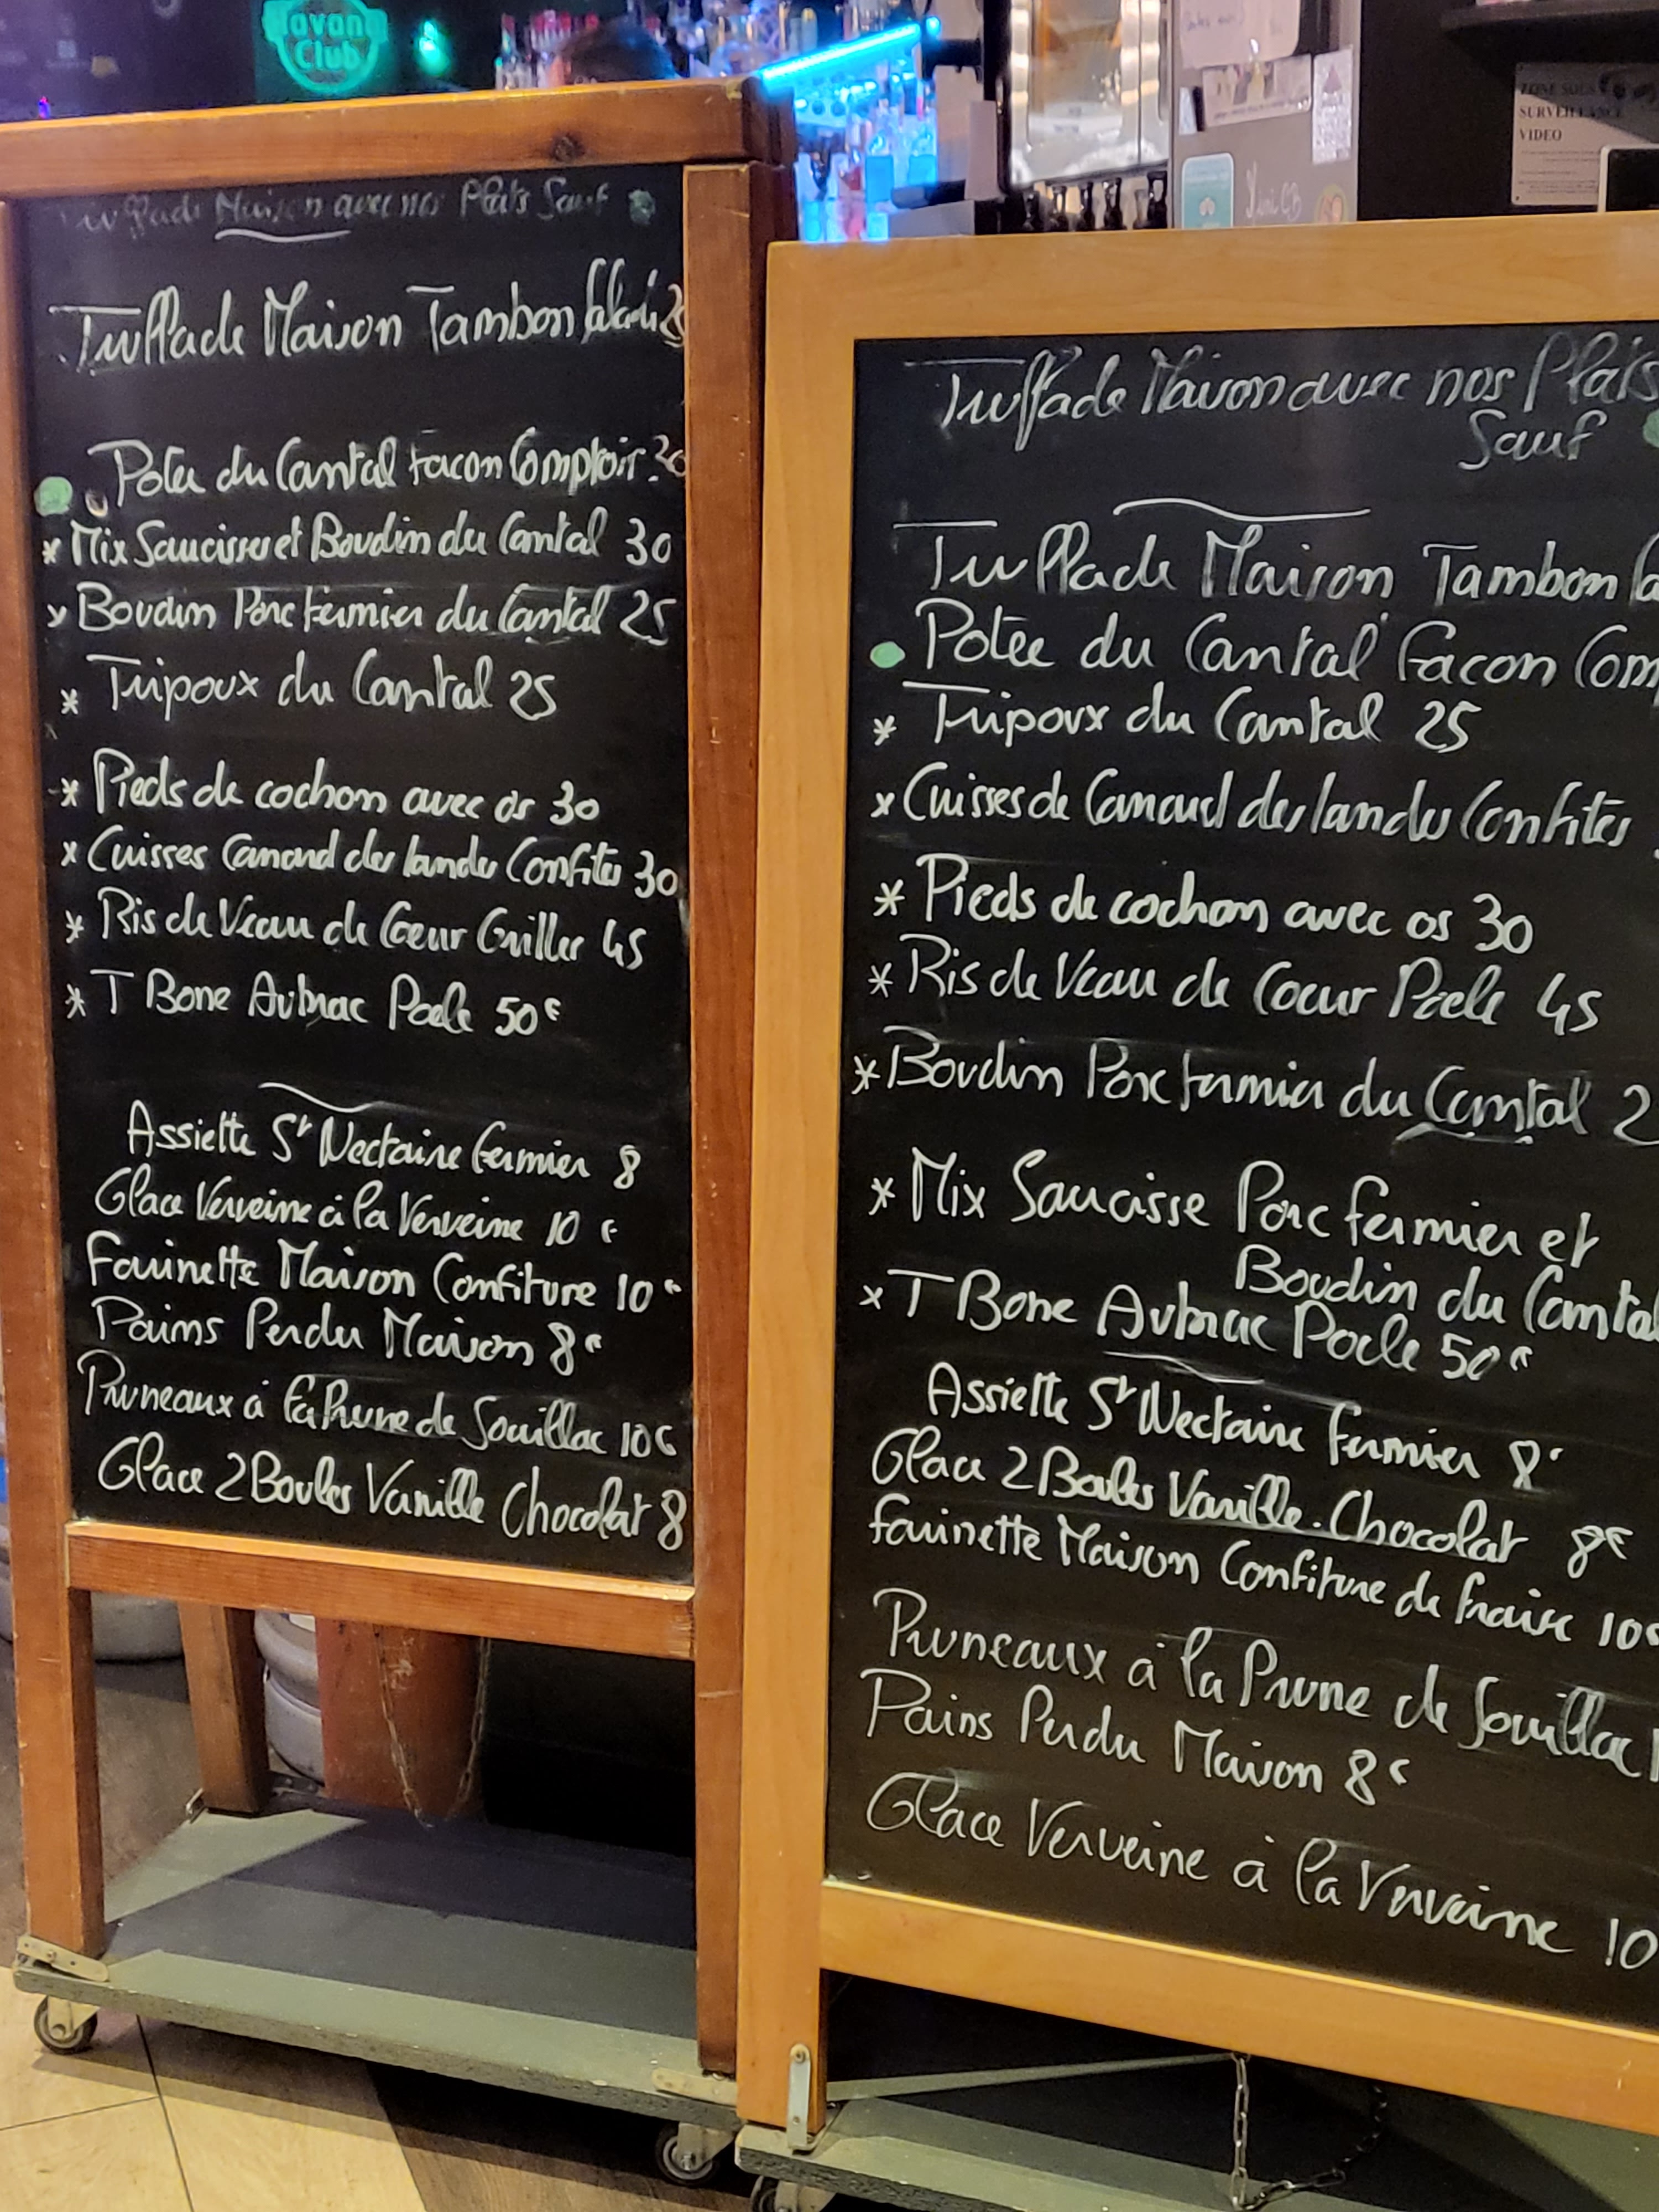 Havana
Club
ZONE SOUS
SURVEILLANCE
VIDEO
Truffade Maison avec nos Plats Sauf
Truffade Maison Jambon Salade 25
Potée du Cantal Facon Comptoir. 30
* Mix Saucisse et Boudin du Cantal 30
* Boudin Porc Fermier du Cantal 25
* Tripoux du Cantal 25
* Pieds de cochon avec os 30
* Cuisses Canard des landes Confites 30
* Ris de Veau de Coeur Griller 45
* T Bone Aubrac Poele 50€
Assiette St Nectaire fermier 8
Glace Verveine à la Verveine 10 €
Farinette Maison Confiture 10€
Pains Perdu Maison 8€
Pruneaux à la Prune de Souillac 10€
Glace 2 Boules Vanille Chocolat 8
Truffade Maison avec nos Plats
Sauf
Truffade Maison Jambon
Potée du Cantal Facon Com
* Tripoux du Cantal 25
* Cuisses de Canard des landes Confites
* Pieds de cochon avec os 30
* Ris de Veau de Coeur Poele 45
* Boudin Porc fermier du Cantal 2
* Mix Saucisse Porc fermier et
Boudin du Cantal
* T Bone Aubrac Poele 50€
Assiette St Nectaire fermier 8€
Glace 2 Boules Vanille. Chocolat 8€
Farinette Maison Confiture de fraise 10€
Pruneaux à la Prune de Souillac
Pains Perdu Maison 8€
Glace Verveine à la Verveine 10